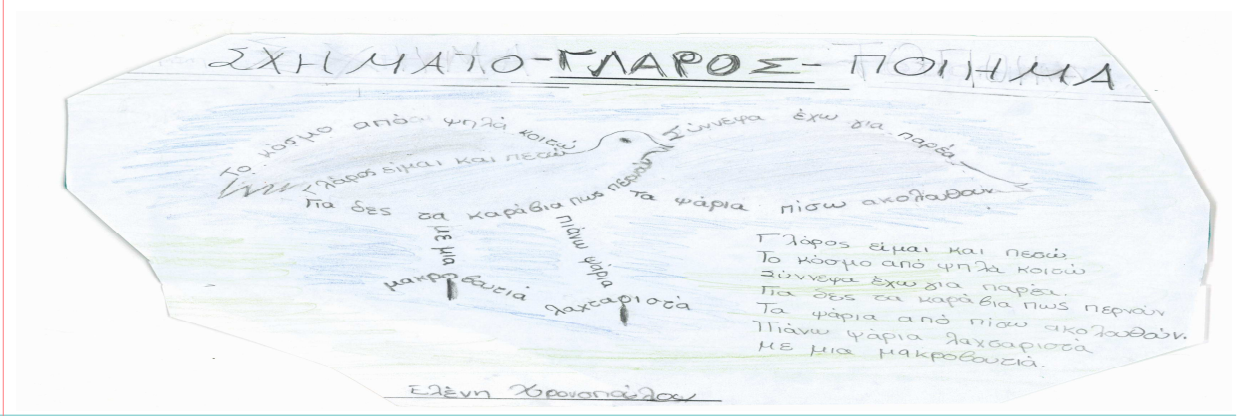 ΣΧΗΜΑΤΟ-ΓΛΑΡΟΣ-ΠΟΙΗΜΑ
Το κοσμο από ψηλά κοιτώ
Σύννεφα έχω για παρέα
Γλάρος είμαι και πετώ
Για δες τα καράβια πως περνούν
Τα ψάρια πίσω ακολουθούν
με μια
μακροβουτιά
πιάνω ψάρια
λαχταριστά
Γλάρος είμαι και πετώ
Το κόσμο από ψηλά κοιτώ
Σύννεφα έχω για παρέα.
Για δες τα καράβια πως περνούν
Τα ψάρια από πίσω ακολουθούν.
Πιάνω ψάρια λαχταριστά
με μια μακροβουτιά.
Ελένη Χρονοπούλου